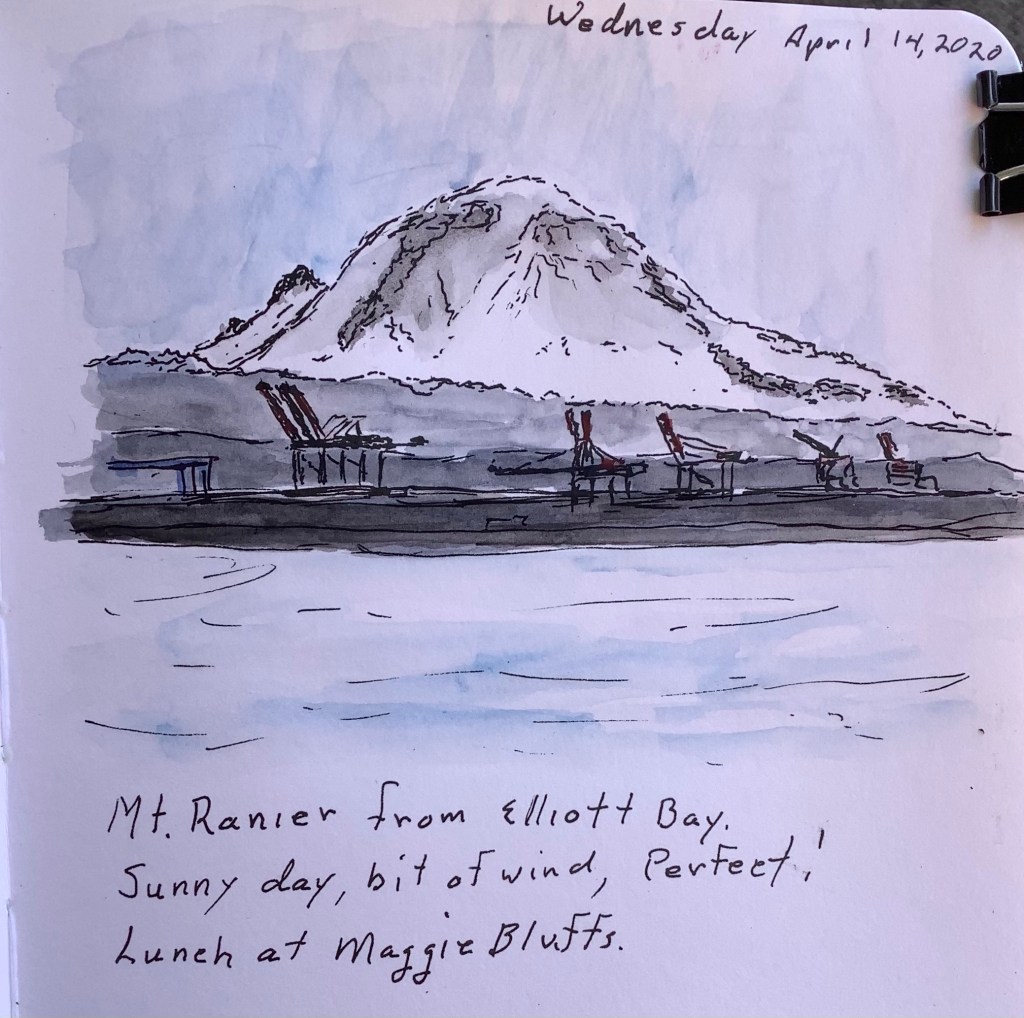 Wednesday April 14, 2020
Mt. Ranier from Elliott Bay.
Sunny day, bit of wind, Perfect!
Lunch at Maggie Bluffs.